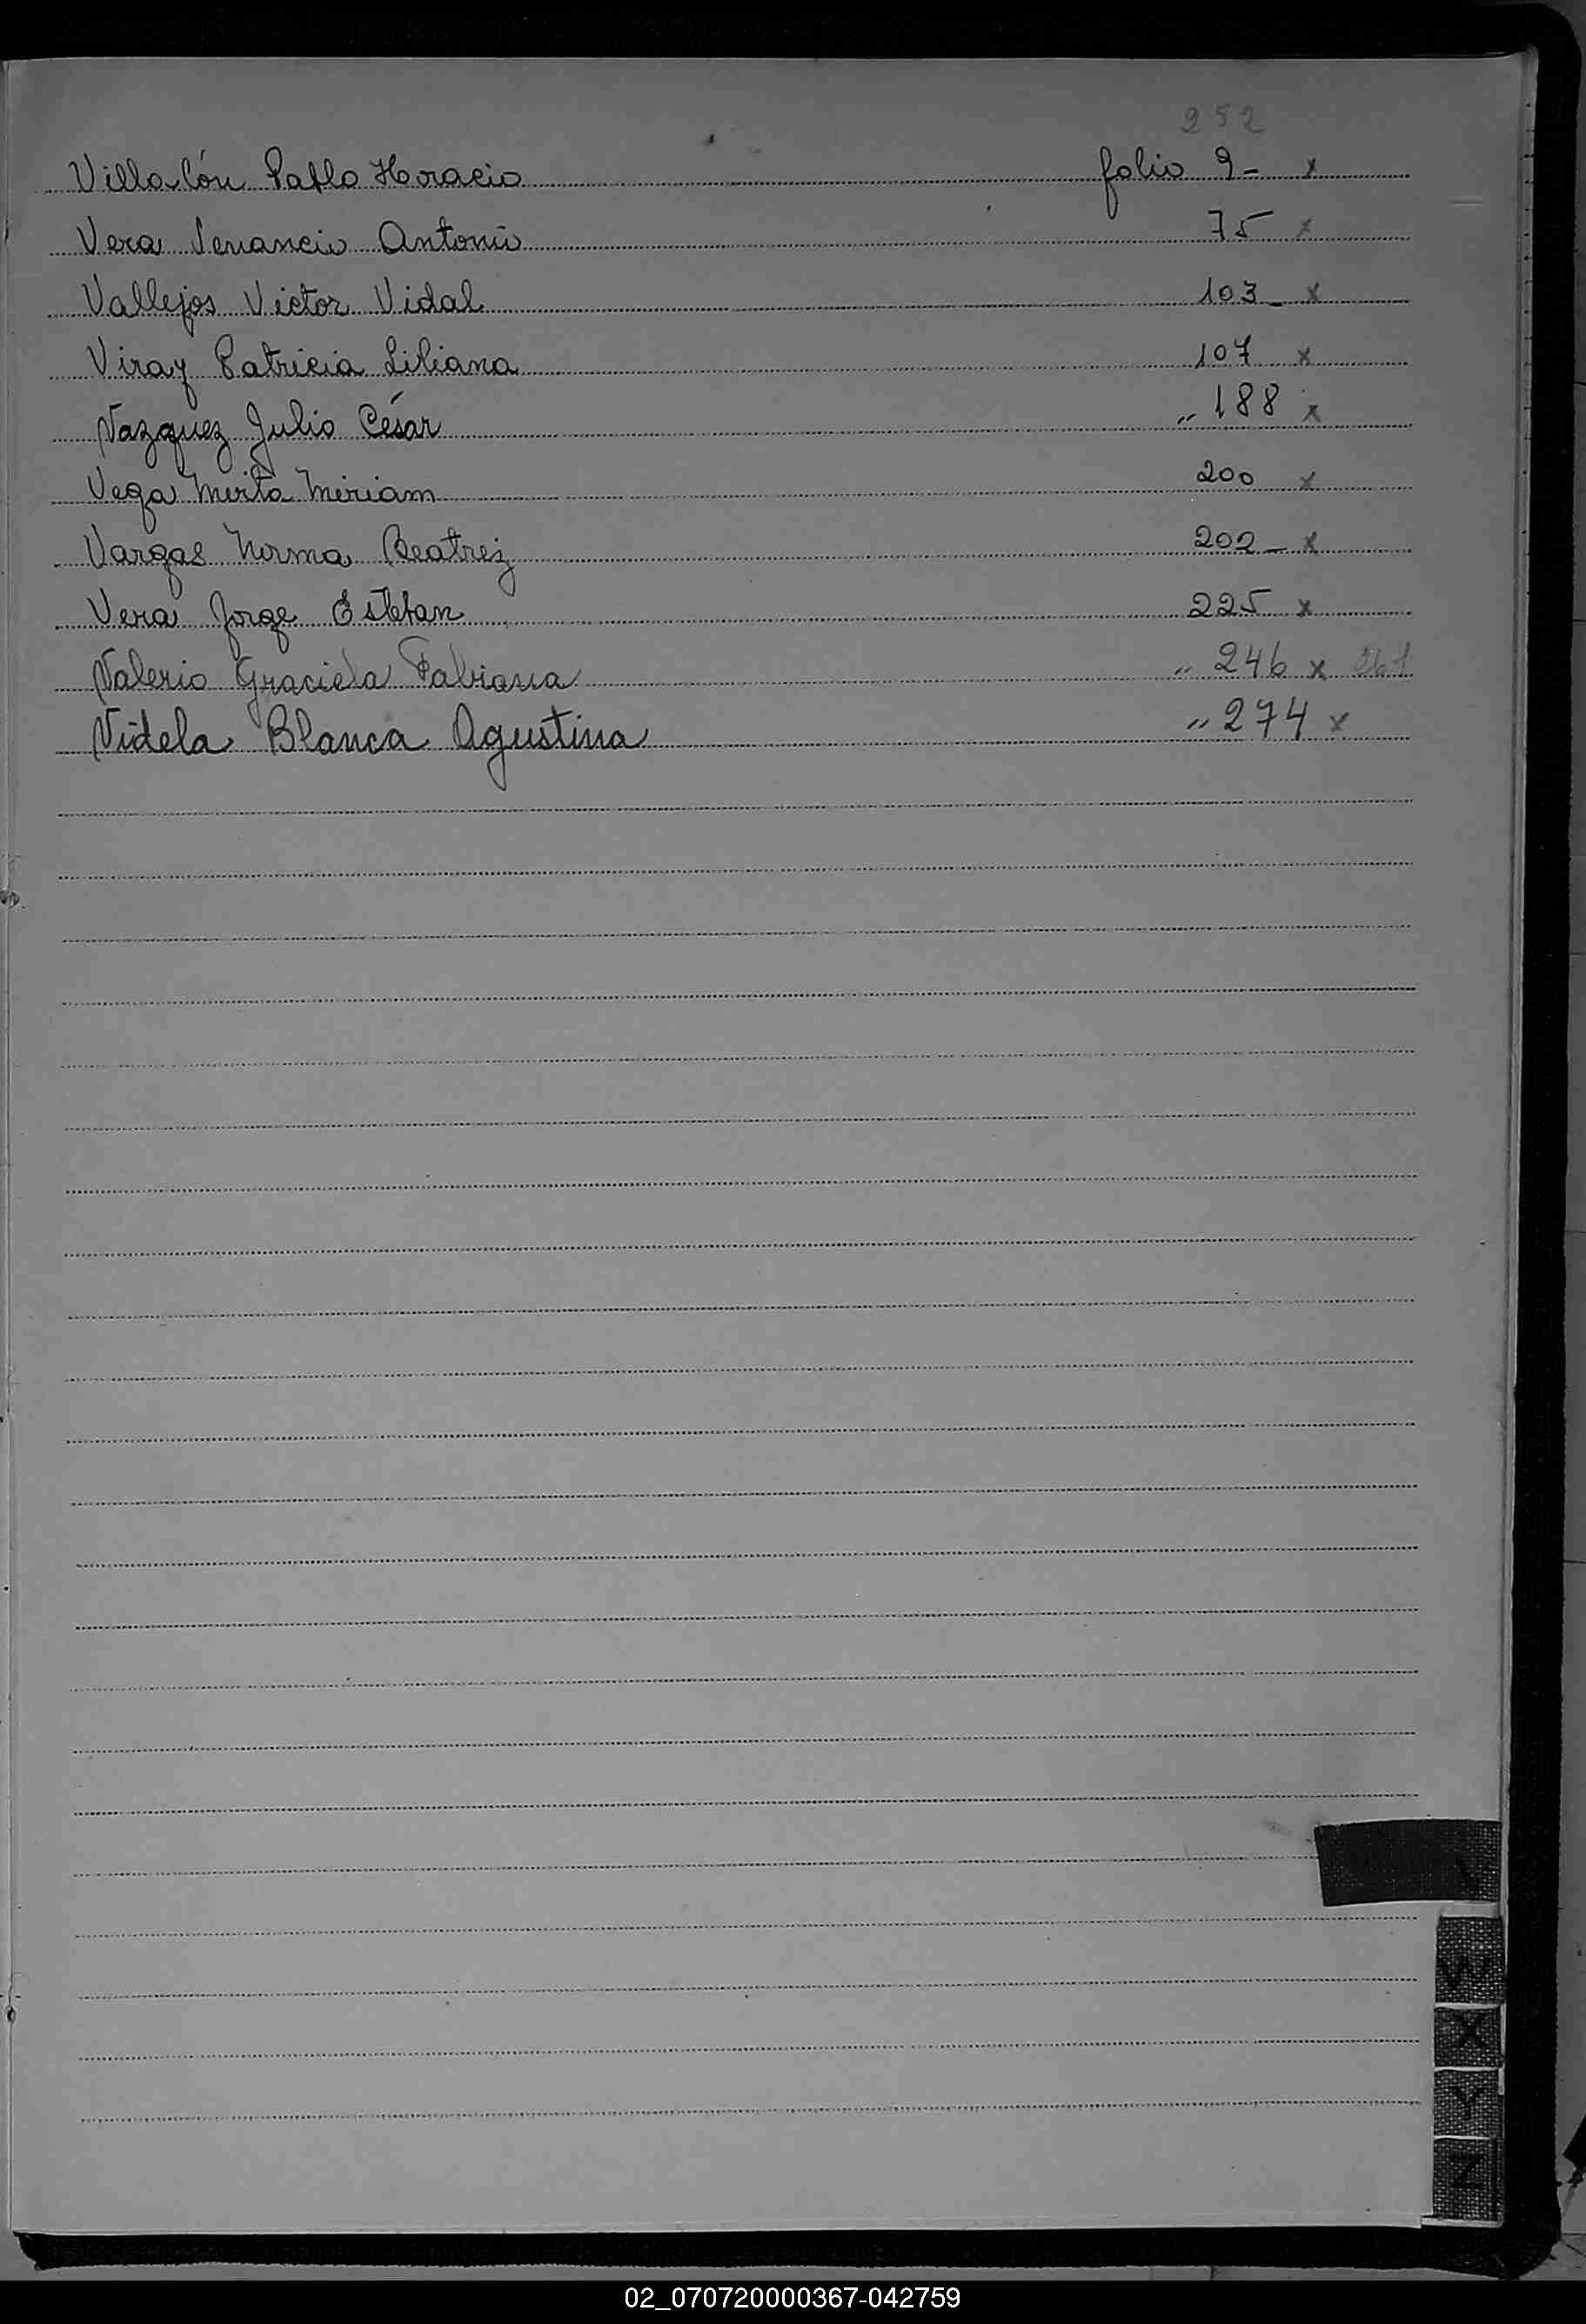 252
Villalón Pablo Horacio folio 9- x
Vera Venancio Antonio 75 x
Vallejos Victor Vidal 103- x
Viray Patricia Liliana 107 x
Vazquez Julio César " 188 x
Vega Mirta Miriam 200 x
Vargas Norma Beatriz 202- x
Vera Jorge Esteban 225 x
Valerio Graciela Fabiana " 246 x 261
Videla Blanca Agustina " 274 x
V
W
X
Y
Z
02_070720000367-042759